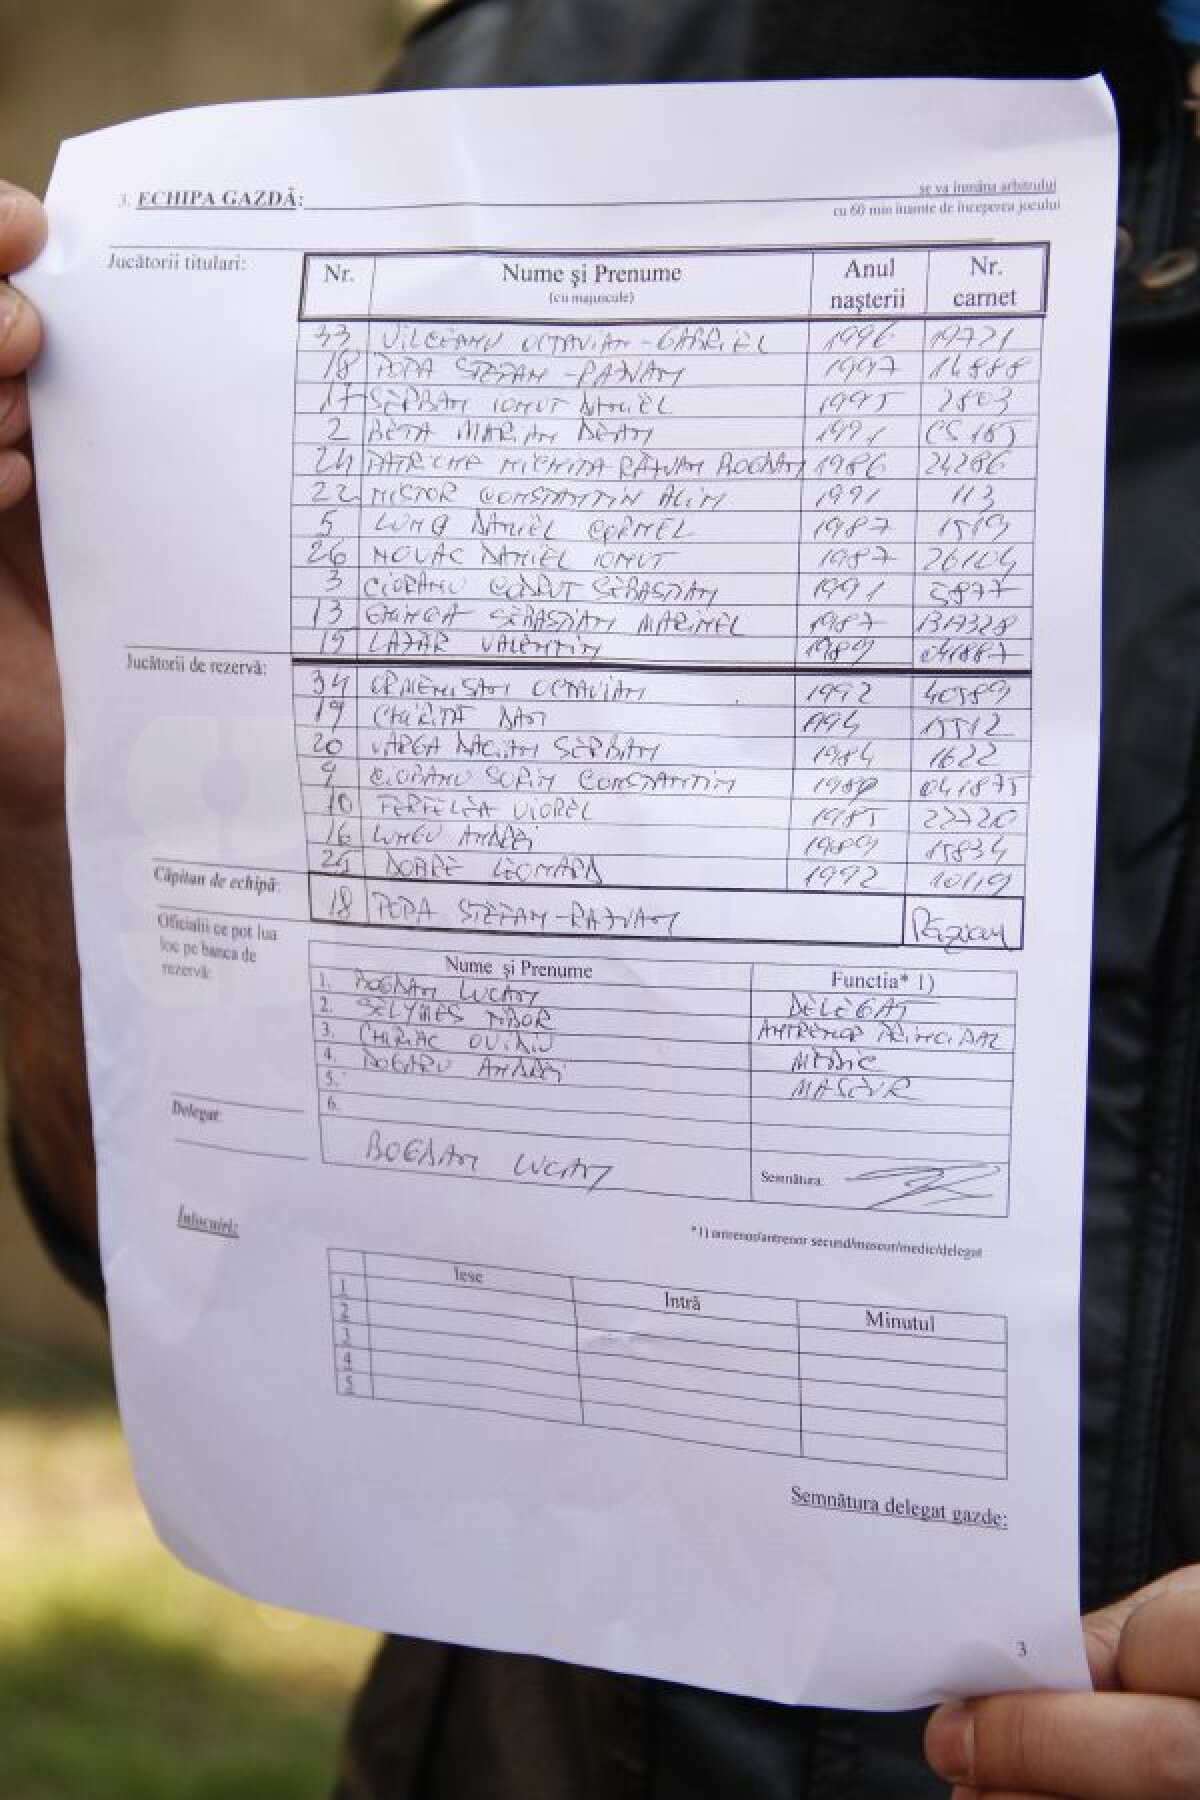 3. ECHIPA GAZDĂ:
se va înmâna arbitrului
cu 60 min înainte de începerea jocului
Jucătorii titulari:
Nr. Nume și Prenume (cu majuscule) Anul nașterii Nr. carnet
33 VILCEANU OCTAVIAN-GABRIEL 1996 19721
18 POPA STEFAN-RAZVAN 1997 14888
17 SERBAN IONUT DANIEL 1995 2803
2 BETA MARIAN DEAN 1991
24 PATRICHE NICHITA RĂZVAN BOGDAN 1986 24286
22 NISTOR CONSTANTIN ALIN 1991 113
5 LUNG DANIEL CORNEL 1987 1519
26 NOVAC DANIEL IONUT 1987 26104
3 CIORANU CODRUT SEBASTIAN 1991 5877
13 SEBASTIAN MARINEL 1987
15 LAZAR VALENTIN 1989 041887
Jucătorii de rezervă:
34 ORMENISAN OCTAVIAN 1992 40989
19 CHIRITĂ DAN 1994 15512
20 VARGA DACIAN SERBAN 1984 1622
9 CIORANU SORIN CONSTANTIN 1989 041875
10 FERFELEA VIOREL 1985 22720
16 LUNGU ANDREI 1989 15834
25 DOBRE LEONARD 1992 10119
Căpitan de echipă: 18 POPA STEFAN-RAZVAN Răzvan
Oficialii ce pot lua
loc pe banca de
rezervă:
Nume și Prenume Functia* 1)
1. BOGDAN LUCIAN DELEGAT
2. SELYMES TIBOR ANTRENOR PRINCIPAL
3. CHIRIAC OVIDIU MEDIC
4. DOGARU ANDREI MASEUR
5.
6.
Delegat: BOGDAN LUCIAN Semnătura:
*1) antrenor/antrenor secund/maseur/medic/delegat
Înlocuiri:
Iese Intră Minutul
1
2
3
4
5
Semnătura delegat gazde:
3